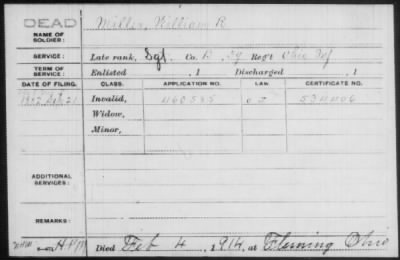 DEAD
NAME OF SOLDIER: Miller, William R.
SERVICE: Late rank, Sgt. Co. Reg't Ohio Inf
TERM OF SERVICE: Enlisted , 1 Discharged , 1
DATE OF FILING. CLASS. APPLICATION NO. LAW. CERTIFICATE NO.
1882 Invalid, 460585
Widow,
Minor,
ADDITIONAL SERVICES:
REMARKS:
Died Feb 4, 1914, at Fleming Ohio